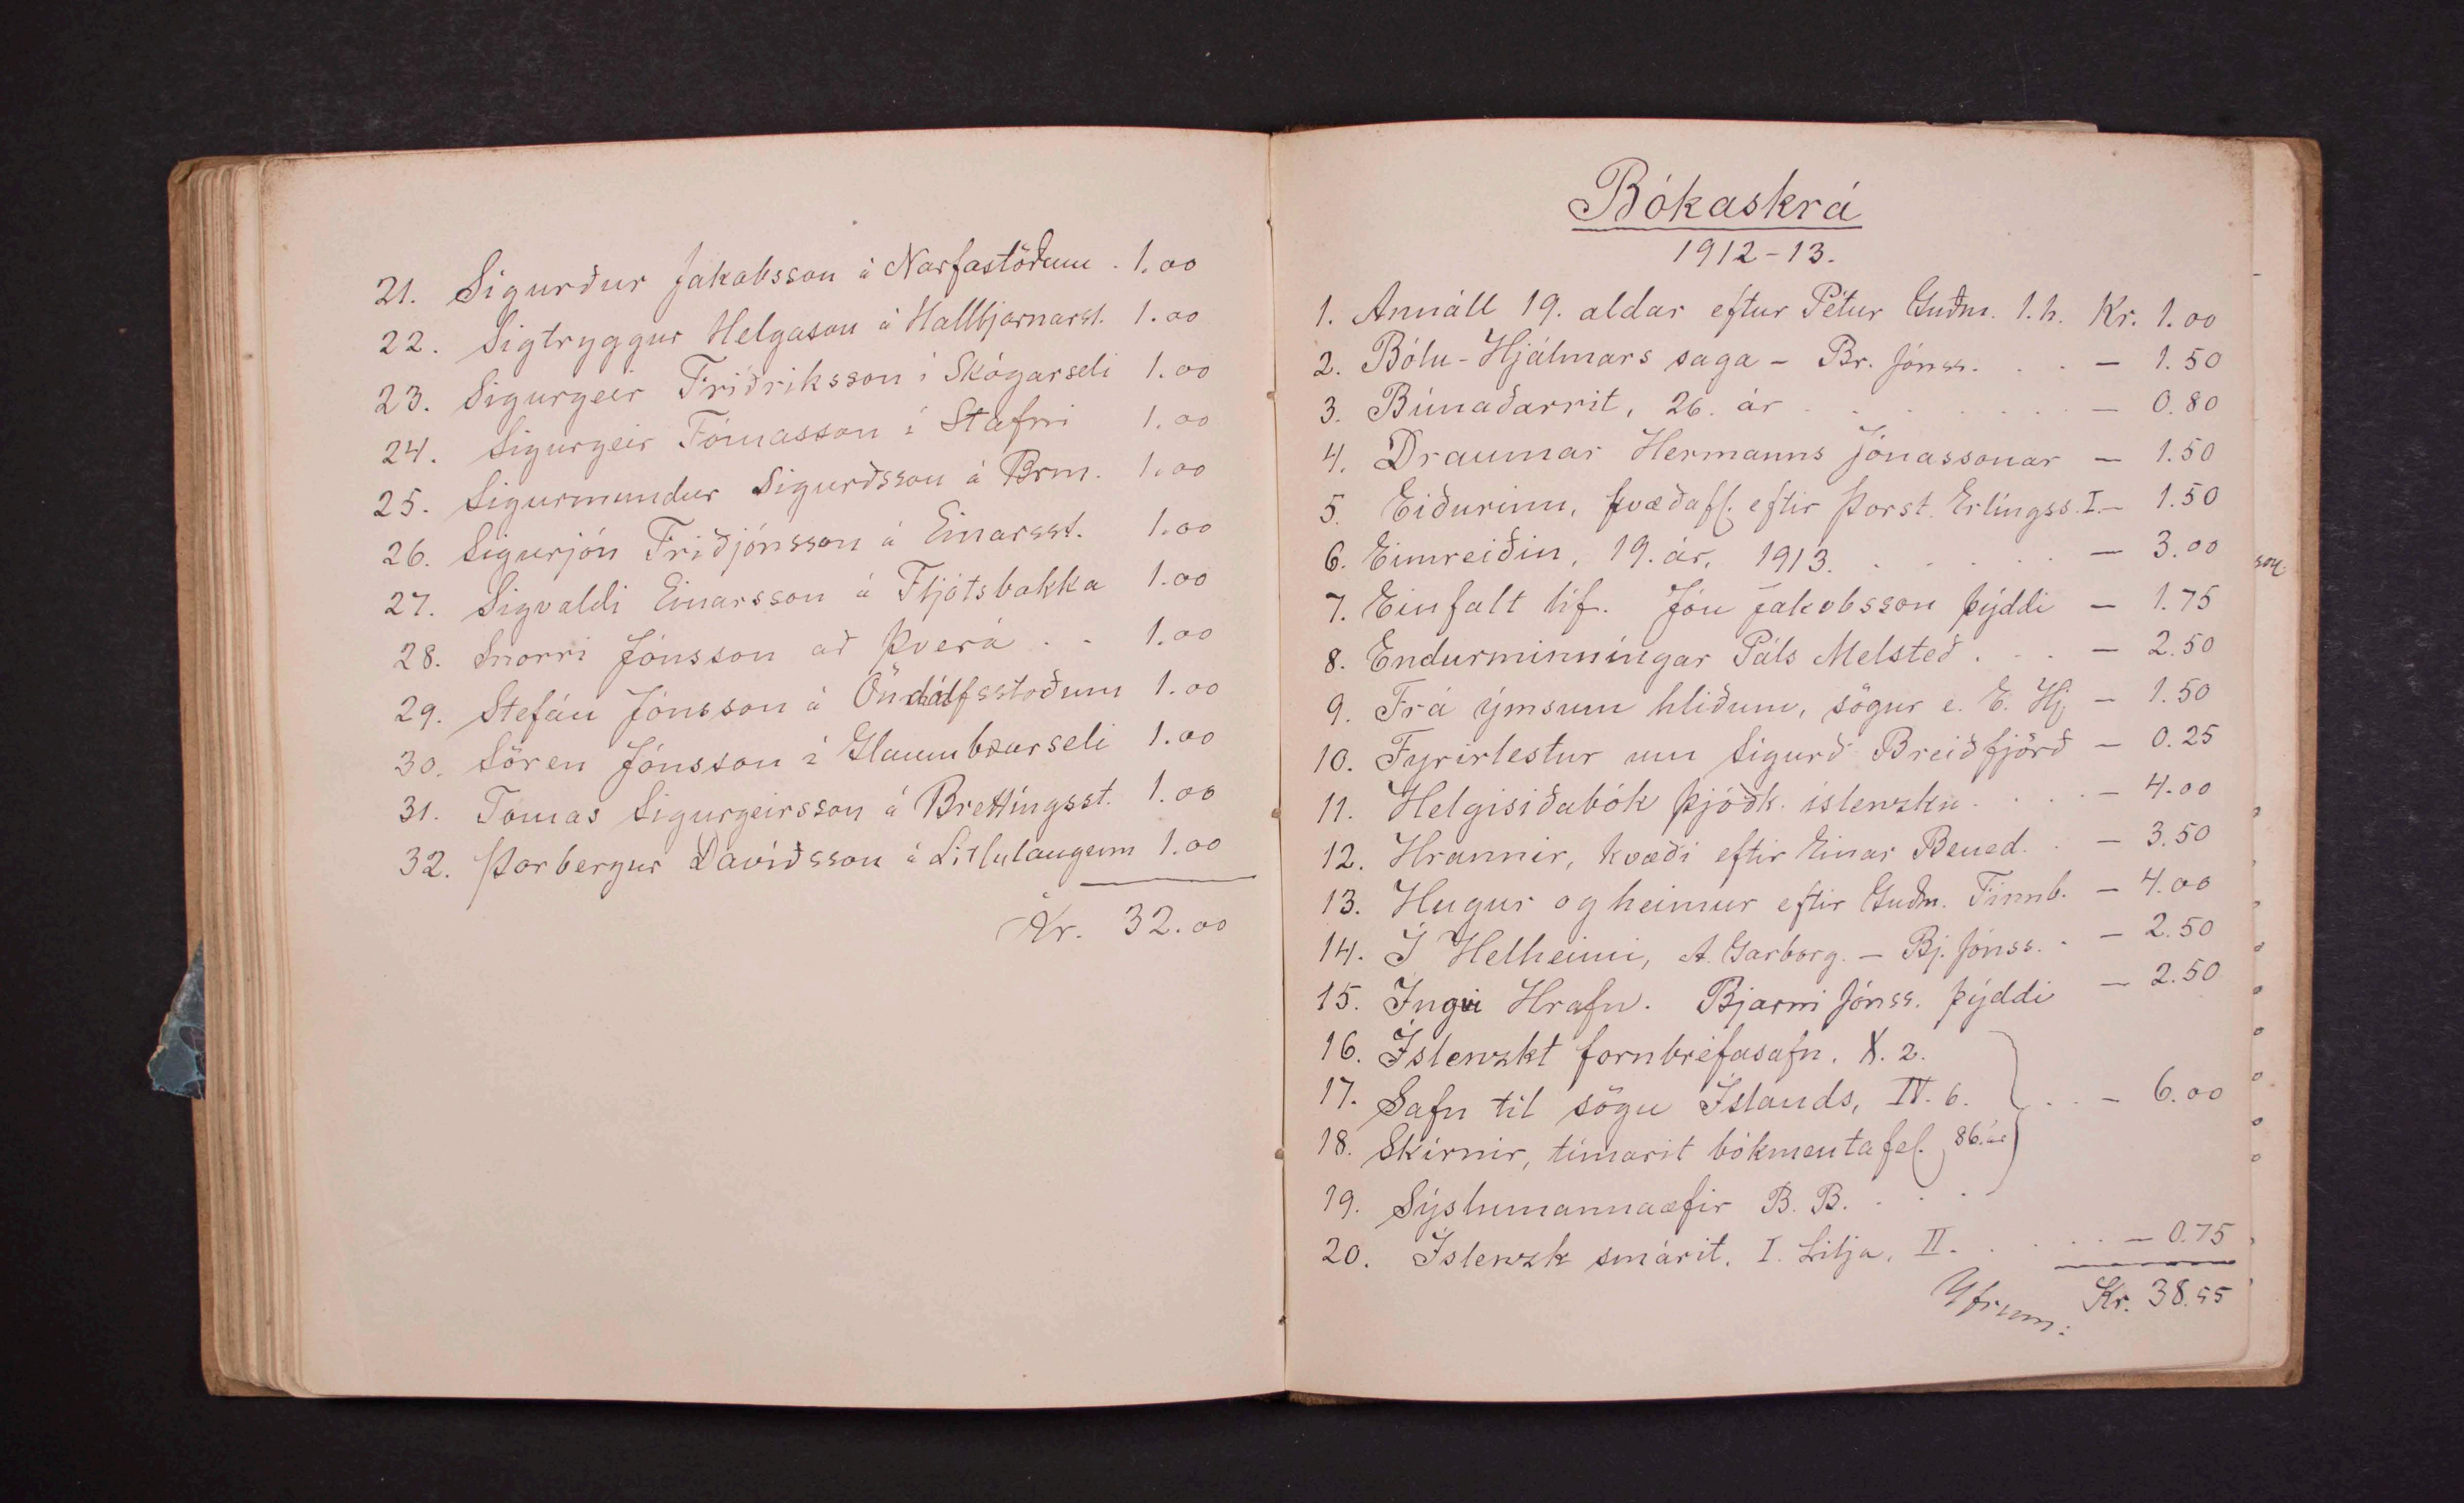 21. Sigurður Jakobsson á Narfastöðum . 1.00
22. Sigtryggur Helgason á Hallbjarnarst. 1.00
23. Sigurgeir Friðriksson í Skógarseli 1.00
24. Sigurgeir Tómasson í Stafni 1.00
25. Sigurmundur Sigurðsson á Brm. 1.00
26. Sigurjón Friðjónsson á Einarsst. 1.00
27. Sigvaldi Einarsson á Fljótsbakka 1.00
28. Snorri Jónsson að Þverá . . 1.00
29. Stefán Jónsson á Öndólfsstöðum 1.00
30. Sören Jónsson í Glaumbæarseli 1.00
31. Tómas Sigurgeirsson á Brettíngsst. 1.00
32. Þorbergur Davíðsson á Litlulaugum 1.00
Kr. 32.00
Bókaskrá
1912-13.
1. Annáll 19. aldar eftur Pétur Guðm. 1.h. Kr. 1.00
2. Bólu-Hjálmars saga - Br. Jónss. . . - 1.50
3. Búnaðarrit, 26. ár . . . . . . . - 0.80
4. Draumar Hermanns Jónassonar - 1.50
5. Eiðurinn, kvæðafl. eftir Þorst. Erlíngss. I. - 1.50
6. Eimreiðin, 19. ár, 1913. . . . . . - 3.00
7. Einfalt líf. Jón Jakobsson þýddi - 1.75
8. Endurminníngar Páls Melsteð . . . - 2.50
9. Frá ýmsum hliðum, sögur e. E. Hj. - 1.50
10. Fyrirlestur um Sigurð Breiðfjörð - 0.25
11. Helgisiðabók þjóðk. íslenzku . . . . - 4.00
12. Hrannir, kvæði eftir Einar Bened. . - 3.50
13. Hugur og heimur eftir Guðm. Finnb. - 4.00
14. Í Helheimi, A. Garborg. - Bj. Jónss. . - 2.50
15. Íngvi Hrafn. Bjarni Jónss. þýddi - 2.50
16. Íslenzkt fornbréfasafn. X. 2.
17. Safn til sögu Íslands, IV. 6. . . - 6.00
18. Skírnir, tímarit bókmentafél. 86. ár
19. Sýslumannaæfir B. B. . . .
20. Íslenzk smárit. I. Lilja, II. . . . . . - 0.75
Yfrum: Kr. 38.55
son